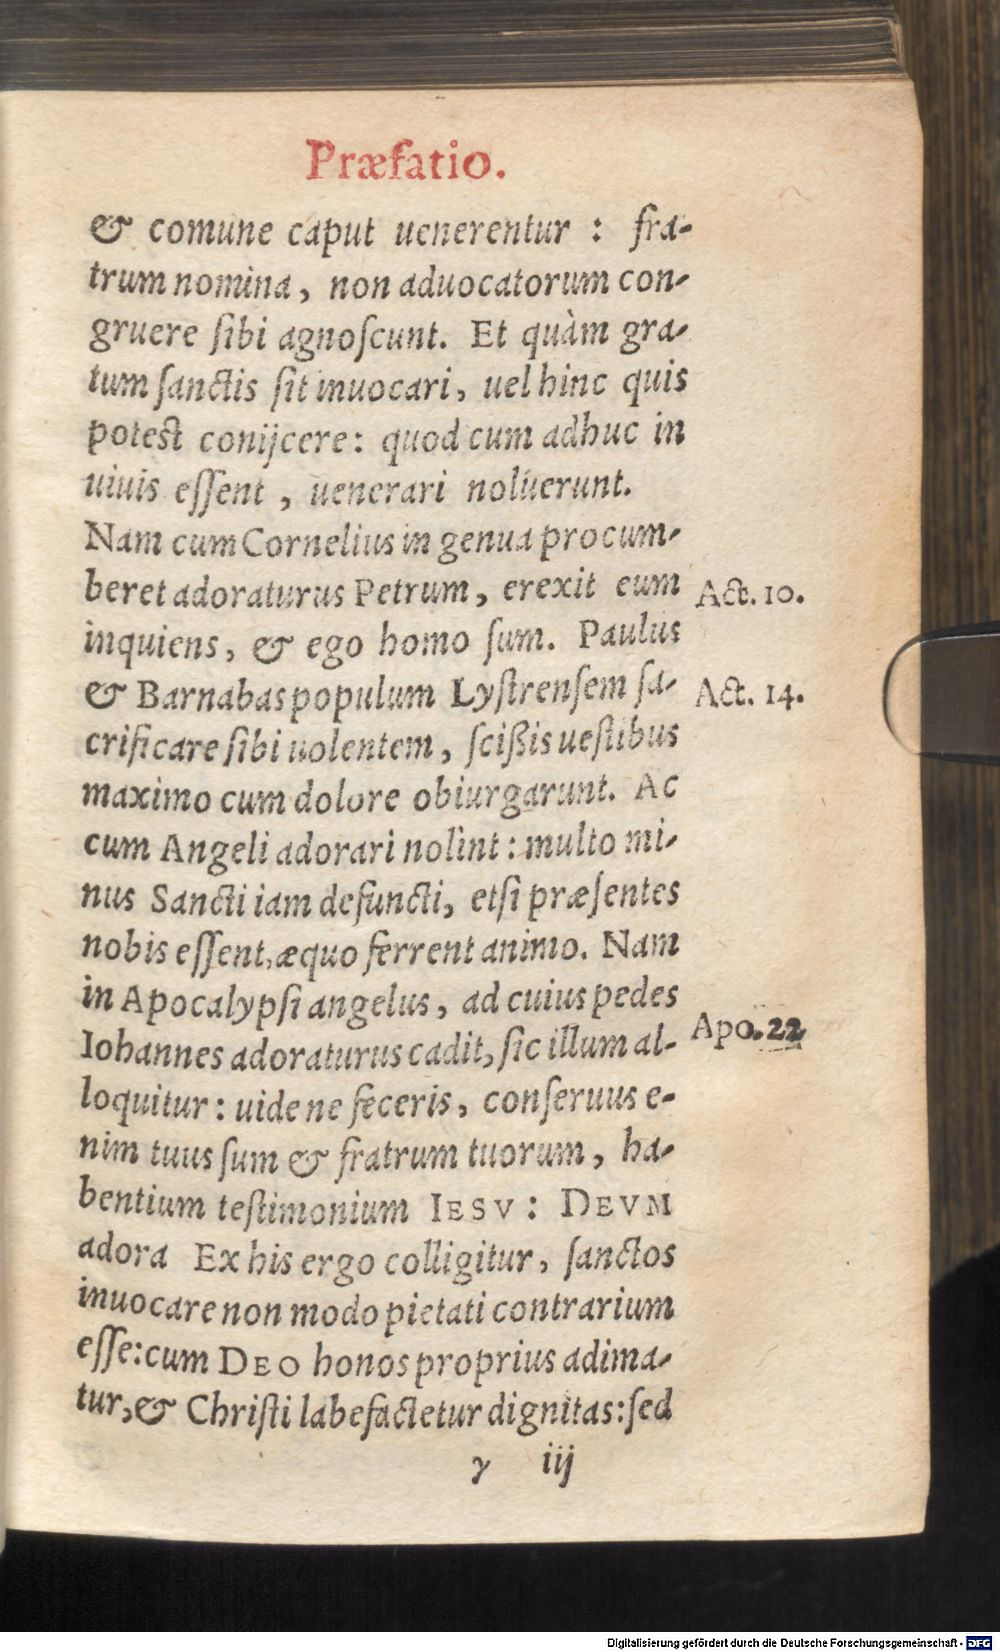 Præfatio.
& comune caput uenerentur : fra-
trum nomina, non aduocatorum con-
gruere ſibi agnoſcunt. Et quàm gra-
tum ſanctis ſit inuocari, uel hinc quis
potest conijcere: quod cum adhuc in
uiuis eſſent, uenerari noluerunt.
Nam cum Cornelius in genua procum-
beret adoraturus Petrum, erexit eum
Act. 10.
inquiens, & ego homo ſum. Paulus
& Barnabas populum Lyſtrenſem ſa-
Act. 14.
crificare ſibi uolentem, ſcißis ueſtibus
maximo cum dolore obiurgarunt. Ac
cum Angeli adorari nolint: multo mi-
nus Sancti iam defuncti, etſi præſentes
nobis eſſent, æquo ferrent animo. Nam
in Apocalypſi angelus, ad cuius pedes
Iohannes adoraturus cadit, ſic illum al-
Apo. 22
loquitur: uide ne feceris, conſeruus e-
nim tuus ſum & fratrum tuorum, ha-
bentium teſtimonium IESV: DEVM
adora Ex his ergo colligitur, ſanctos
inuocare non modo pietati contrarium
eſſe: cum DEO honos proprius adima-
tur, & Chriſti labefactetur dignitas: ſed
γ iij
Digitalisierung gefördert durch die Deutsche Forschungsgemeinschaft - DFG